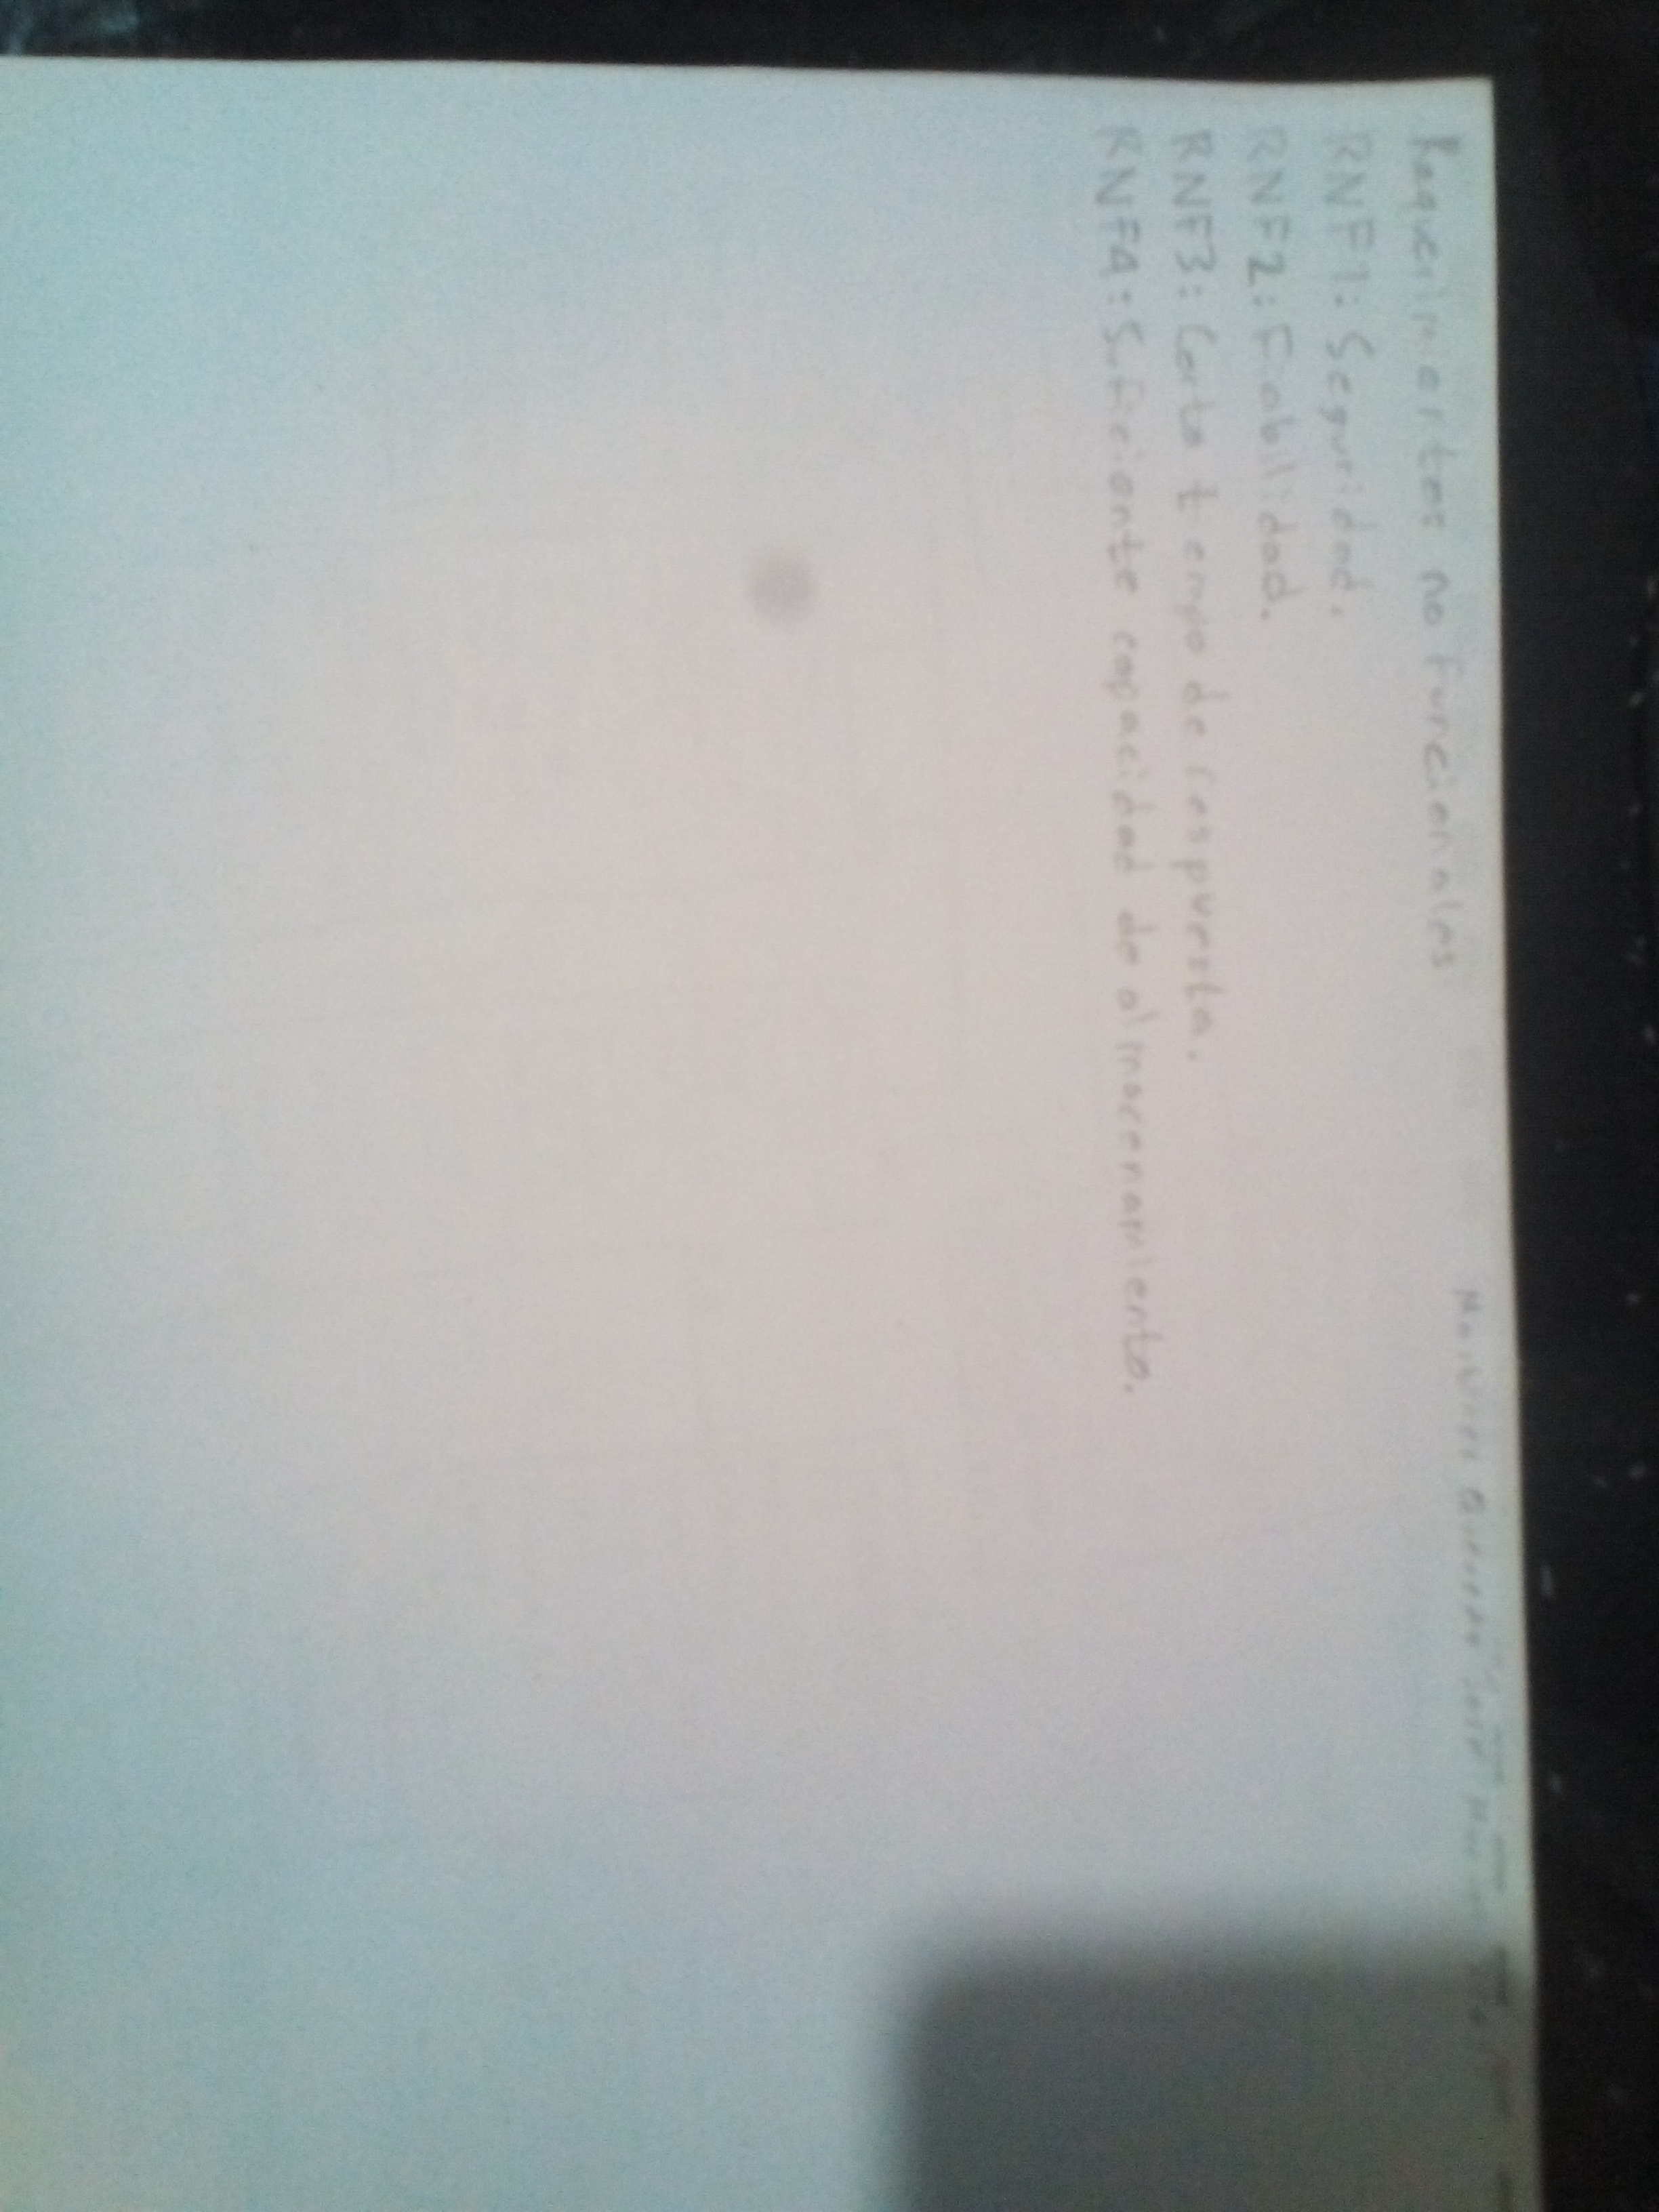 Requerimientos no Funcionales
RNF1: Seguridad.
RNF2: Fiabilidad.
RNF3: Corto tiempo de respuesta.
RNF4: Suficiente capacidad de almacenamiento.